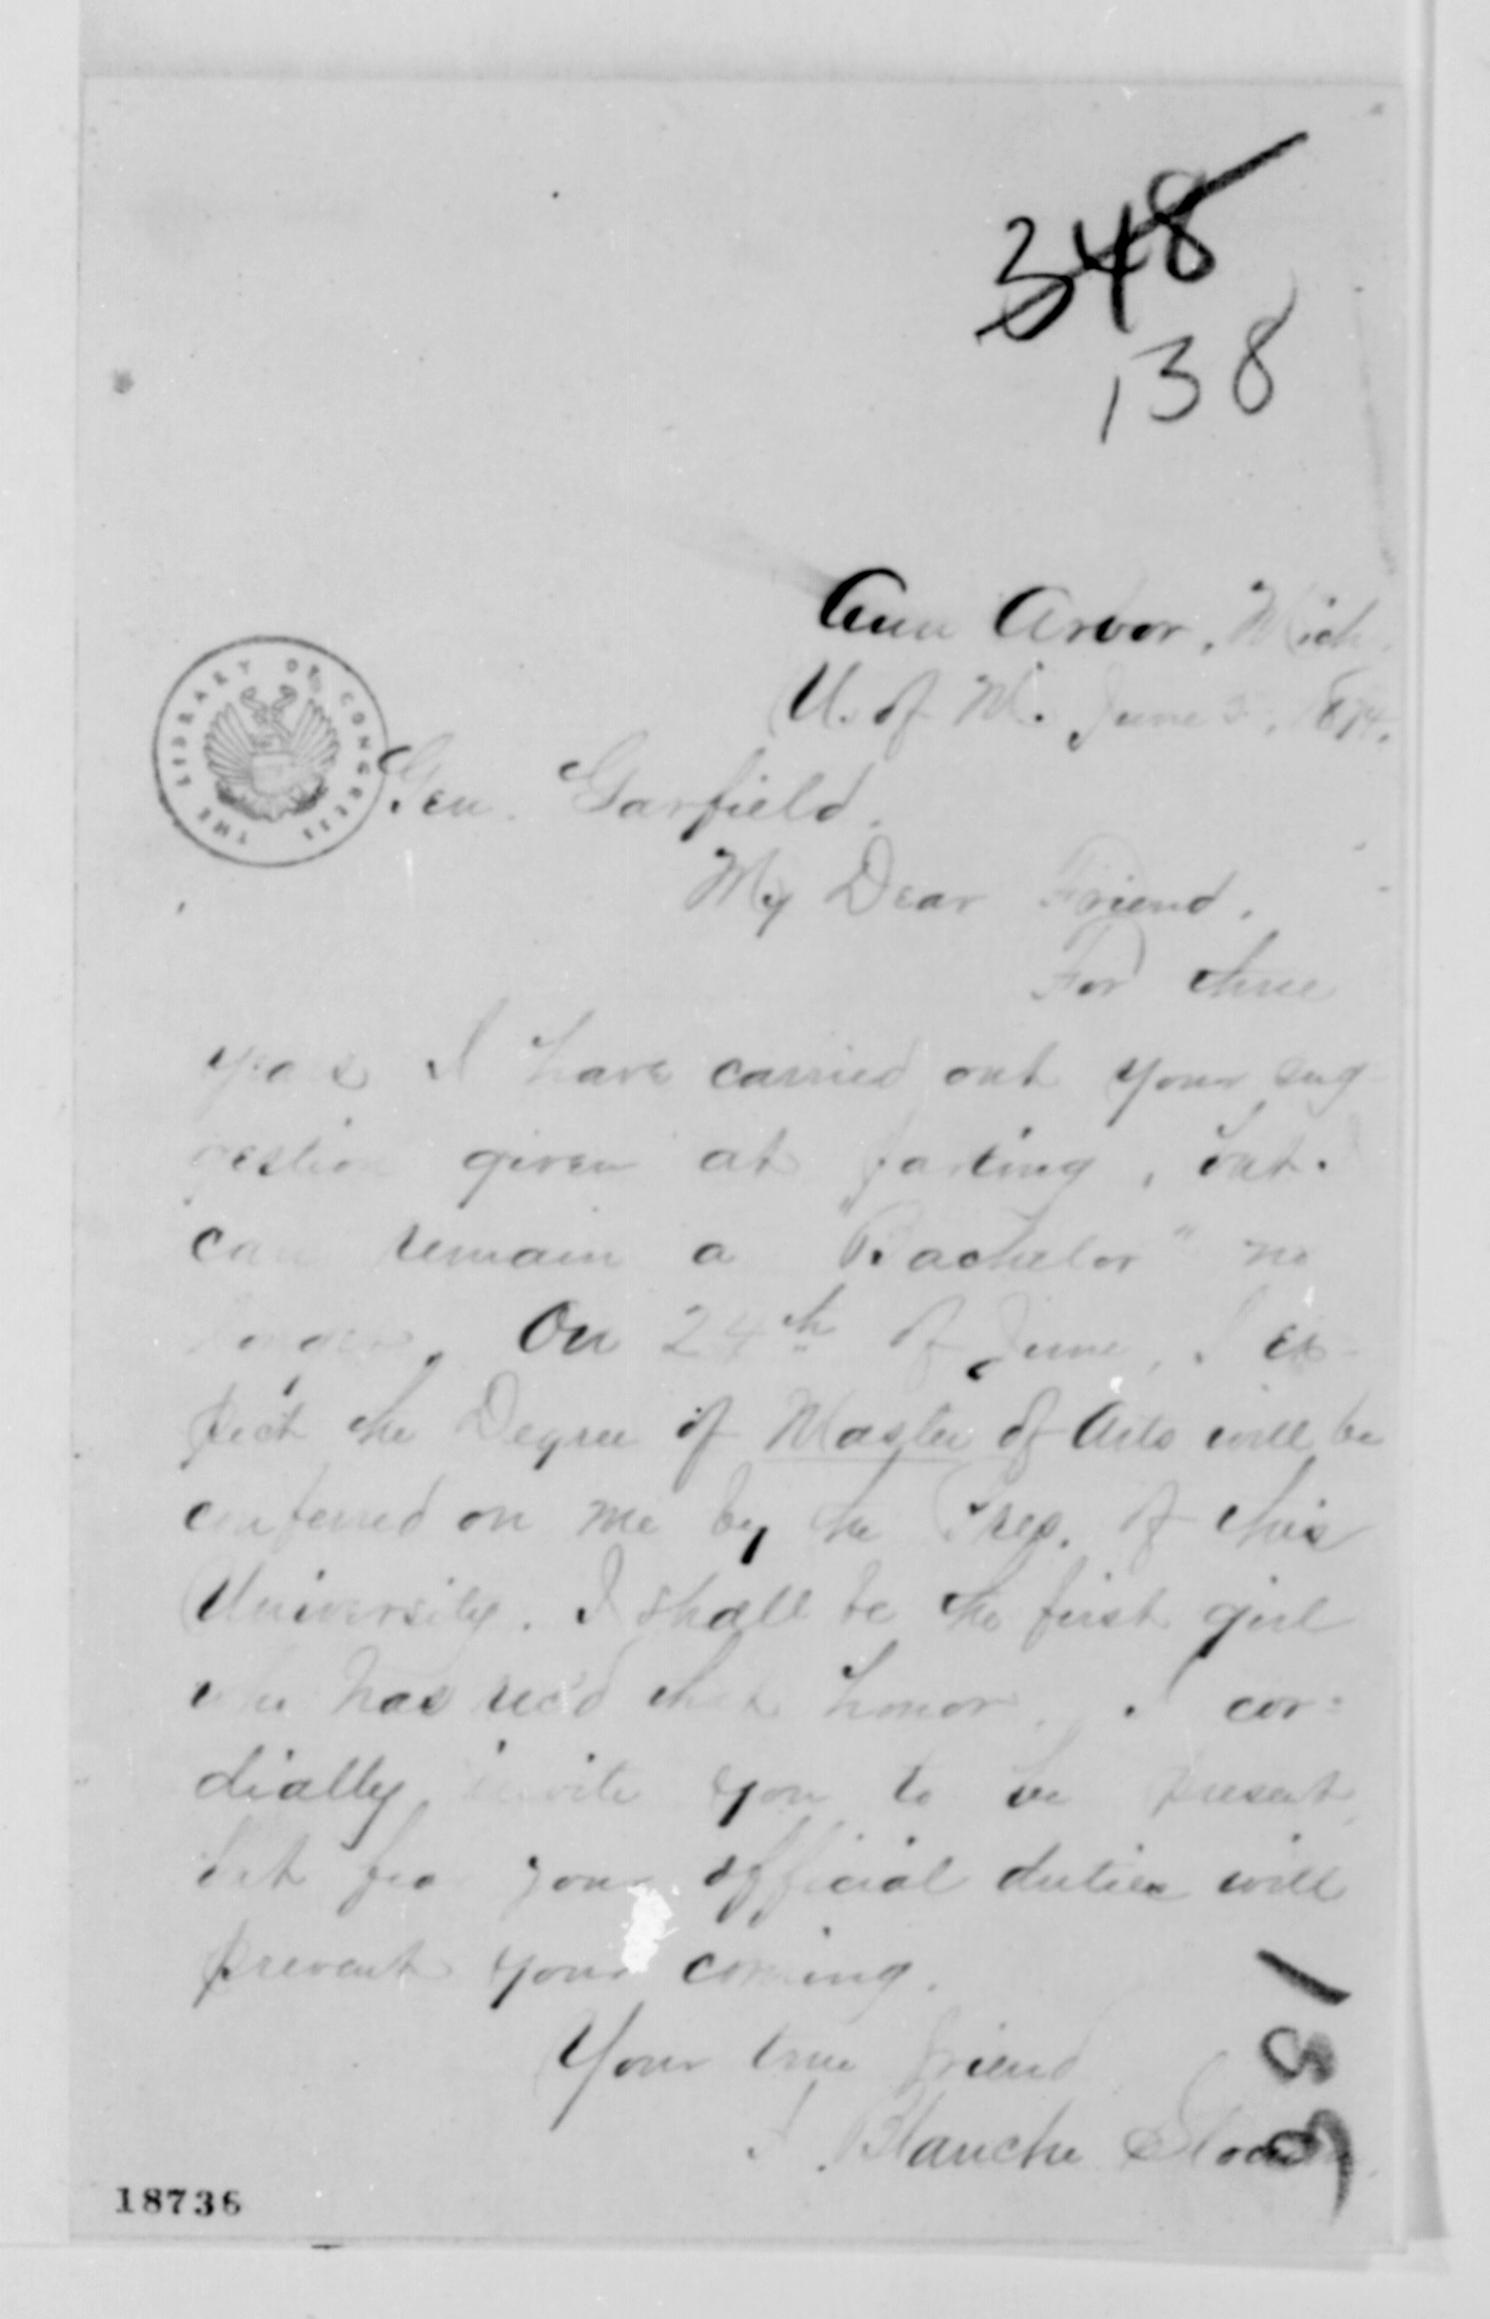 348
138
Ann Arbor, Mich.
U. of M. June 1874.
THE LIBRARY OF CONGRESS
Gen. Garfield.
My Dear Friend.
For three
years I have carried out your sug
gestion given at parting, but.
can remain a "Bachelor" no
longer. On 24th of June, I ex-
pect the Degree of Master of Arts will be
conferred on me by the Pres. of this
University. I shall be the first girl
who has rec'd that honor. I cor-
dially invite you to be present,
but fear your official duties will
prevent your coming.
Your true friend
Blanche
138
18736